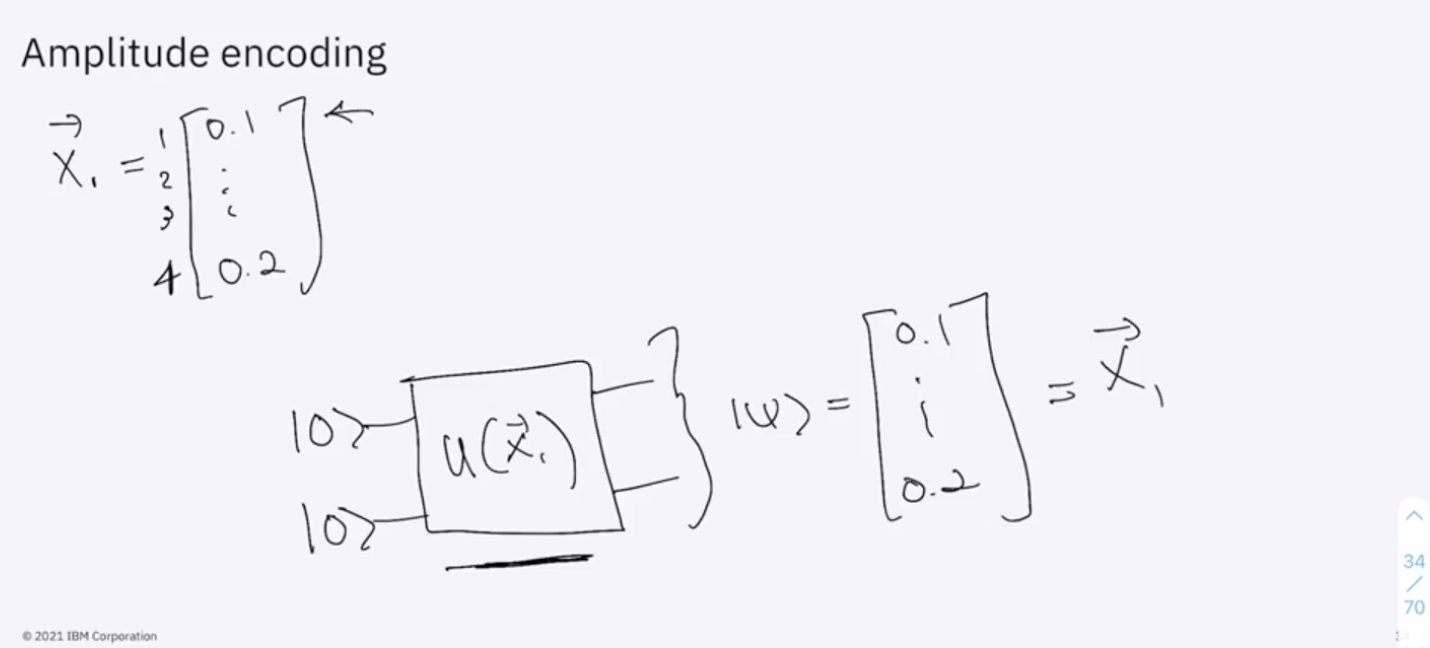 Amplitude encoding
→
X₁ = 1 [0.1
2 ⋮
3
4 0.2] ←
|0⟩ U(x⃗₁) |ψ⟩ = [0.1
⋮
0.2] = x⃗₁
|0⟩
34
/
70
© 2021 IBM Corporation